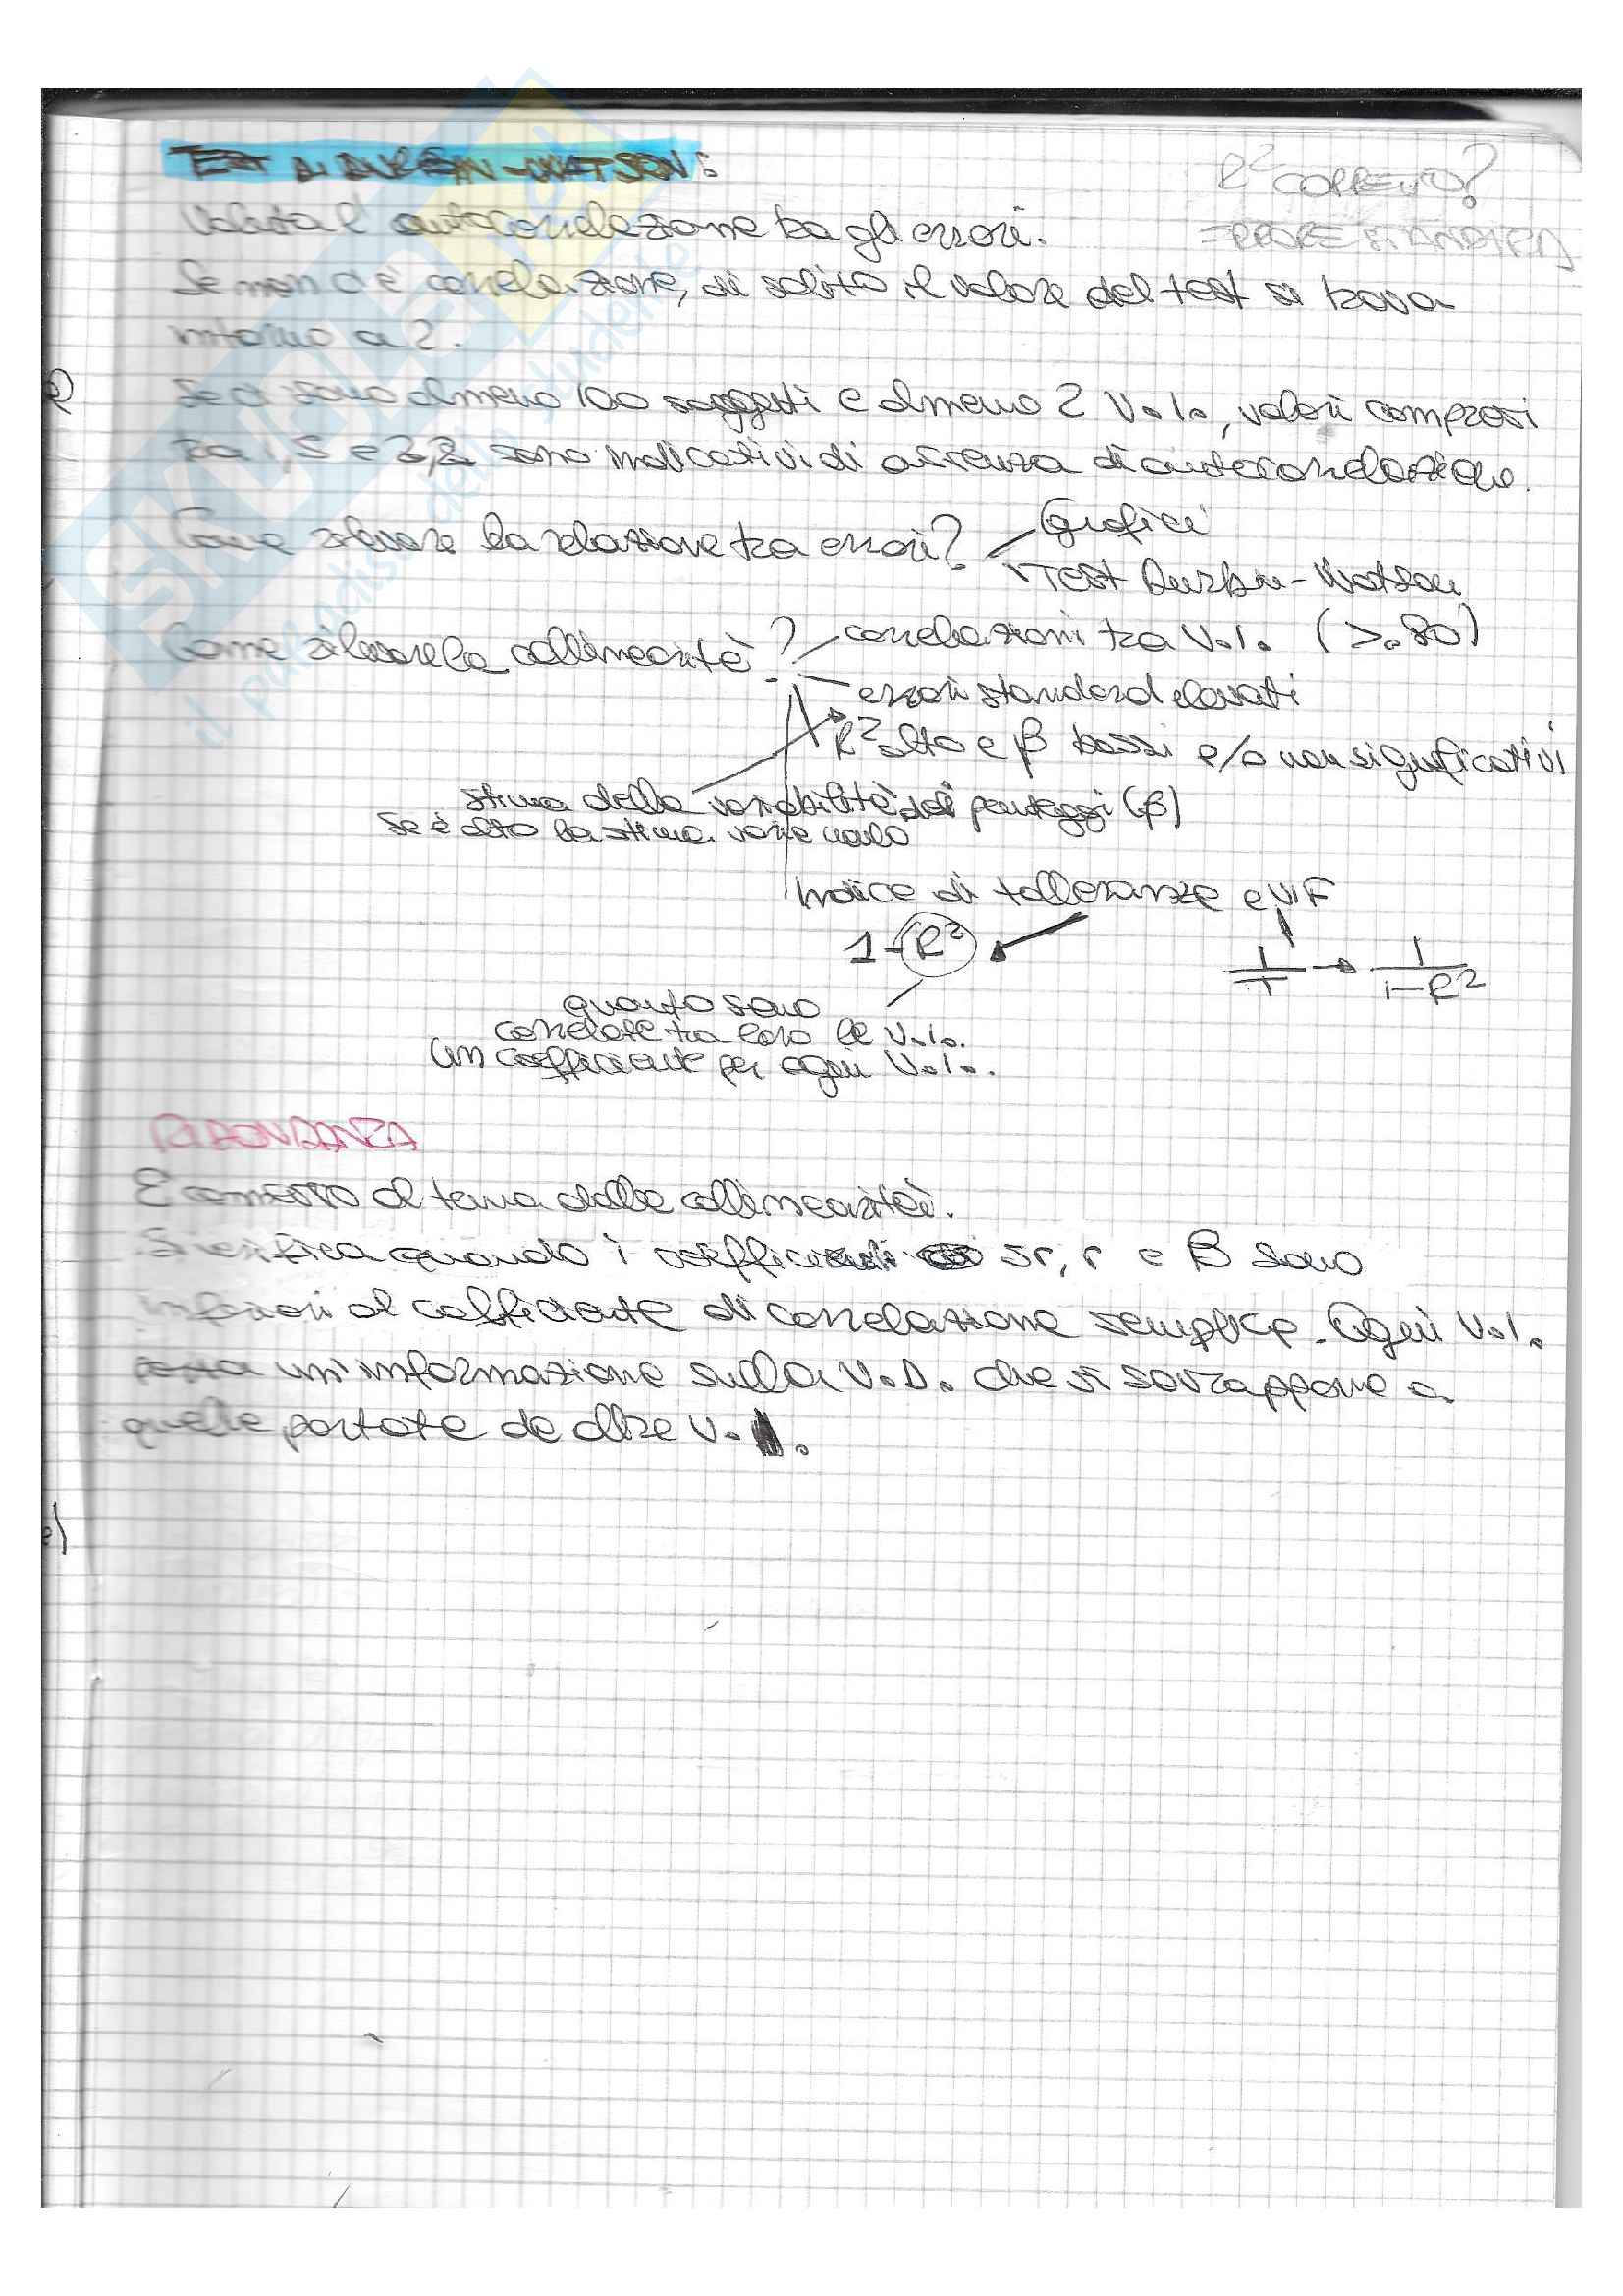 TEST DI DURBIN-WATSON:
R² CORRETTO?
ERRORE STANDARD
Valuta l'autocorrelazione tra gli errori.
Se non c'è correlazione, di solito il valore del test si trova
intorno a 2.
Se ci sono almeno 100 soggetti e almeno 2 V.I., valori compresi
tra 1,5 e 2,2 sono indicativi di assenza di autocorrelazione.
Come rilevare la relazione tra errori?
Grafici
Test Durbin-Watson
Come rilevare la collinearità?
correlazioni tra V.I. (>.80)
errori standard elevati
R² alto e β bassi e/o non significativi
stima della variabilità dei punteggi (β)
se è alto la stima varia
Indice di tolleranza e VIF
1-R²
1/T → 1/1-R²
quanto sono
correlate tra loro le V.I.
un coefficiente per ogni V.I.
RIDONDANZA
È connesso al tema della collinearità.
Si verifica quando i coefficienti sr, r e β sono
inferiori al coefficiente di correlazione semplice. Ogni V.I.
porta un'informazione sulla V.D. che si sovrappone a
quelle portate da altre V.I.
SKUOLA.net
il paradiso dello studente